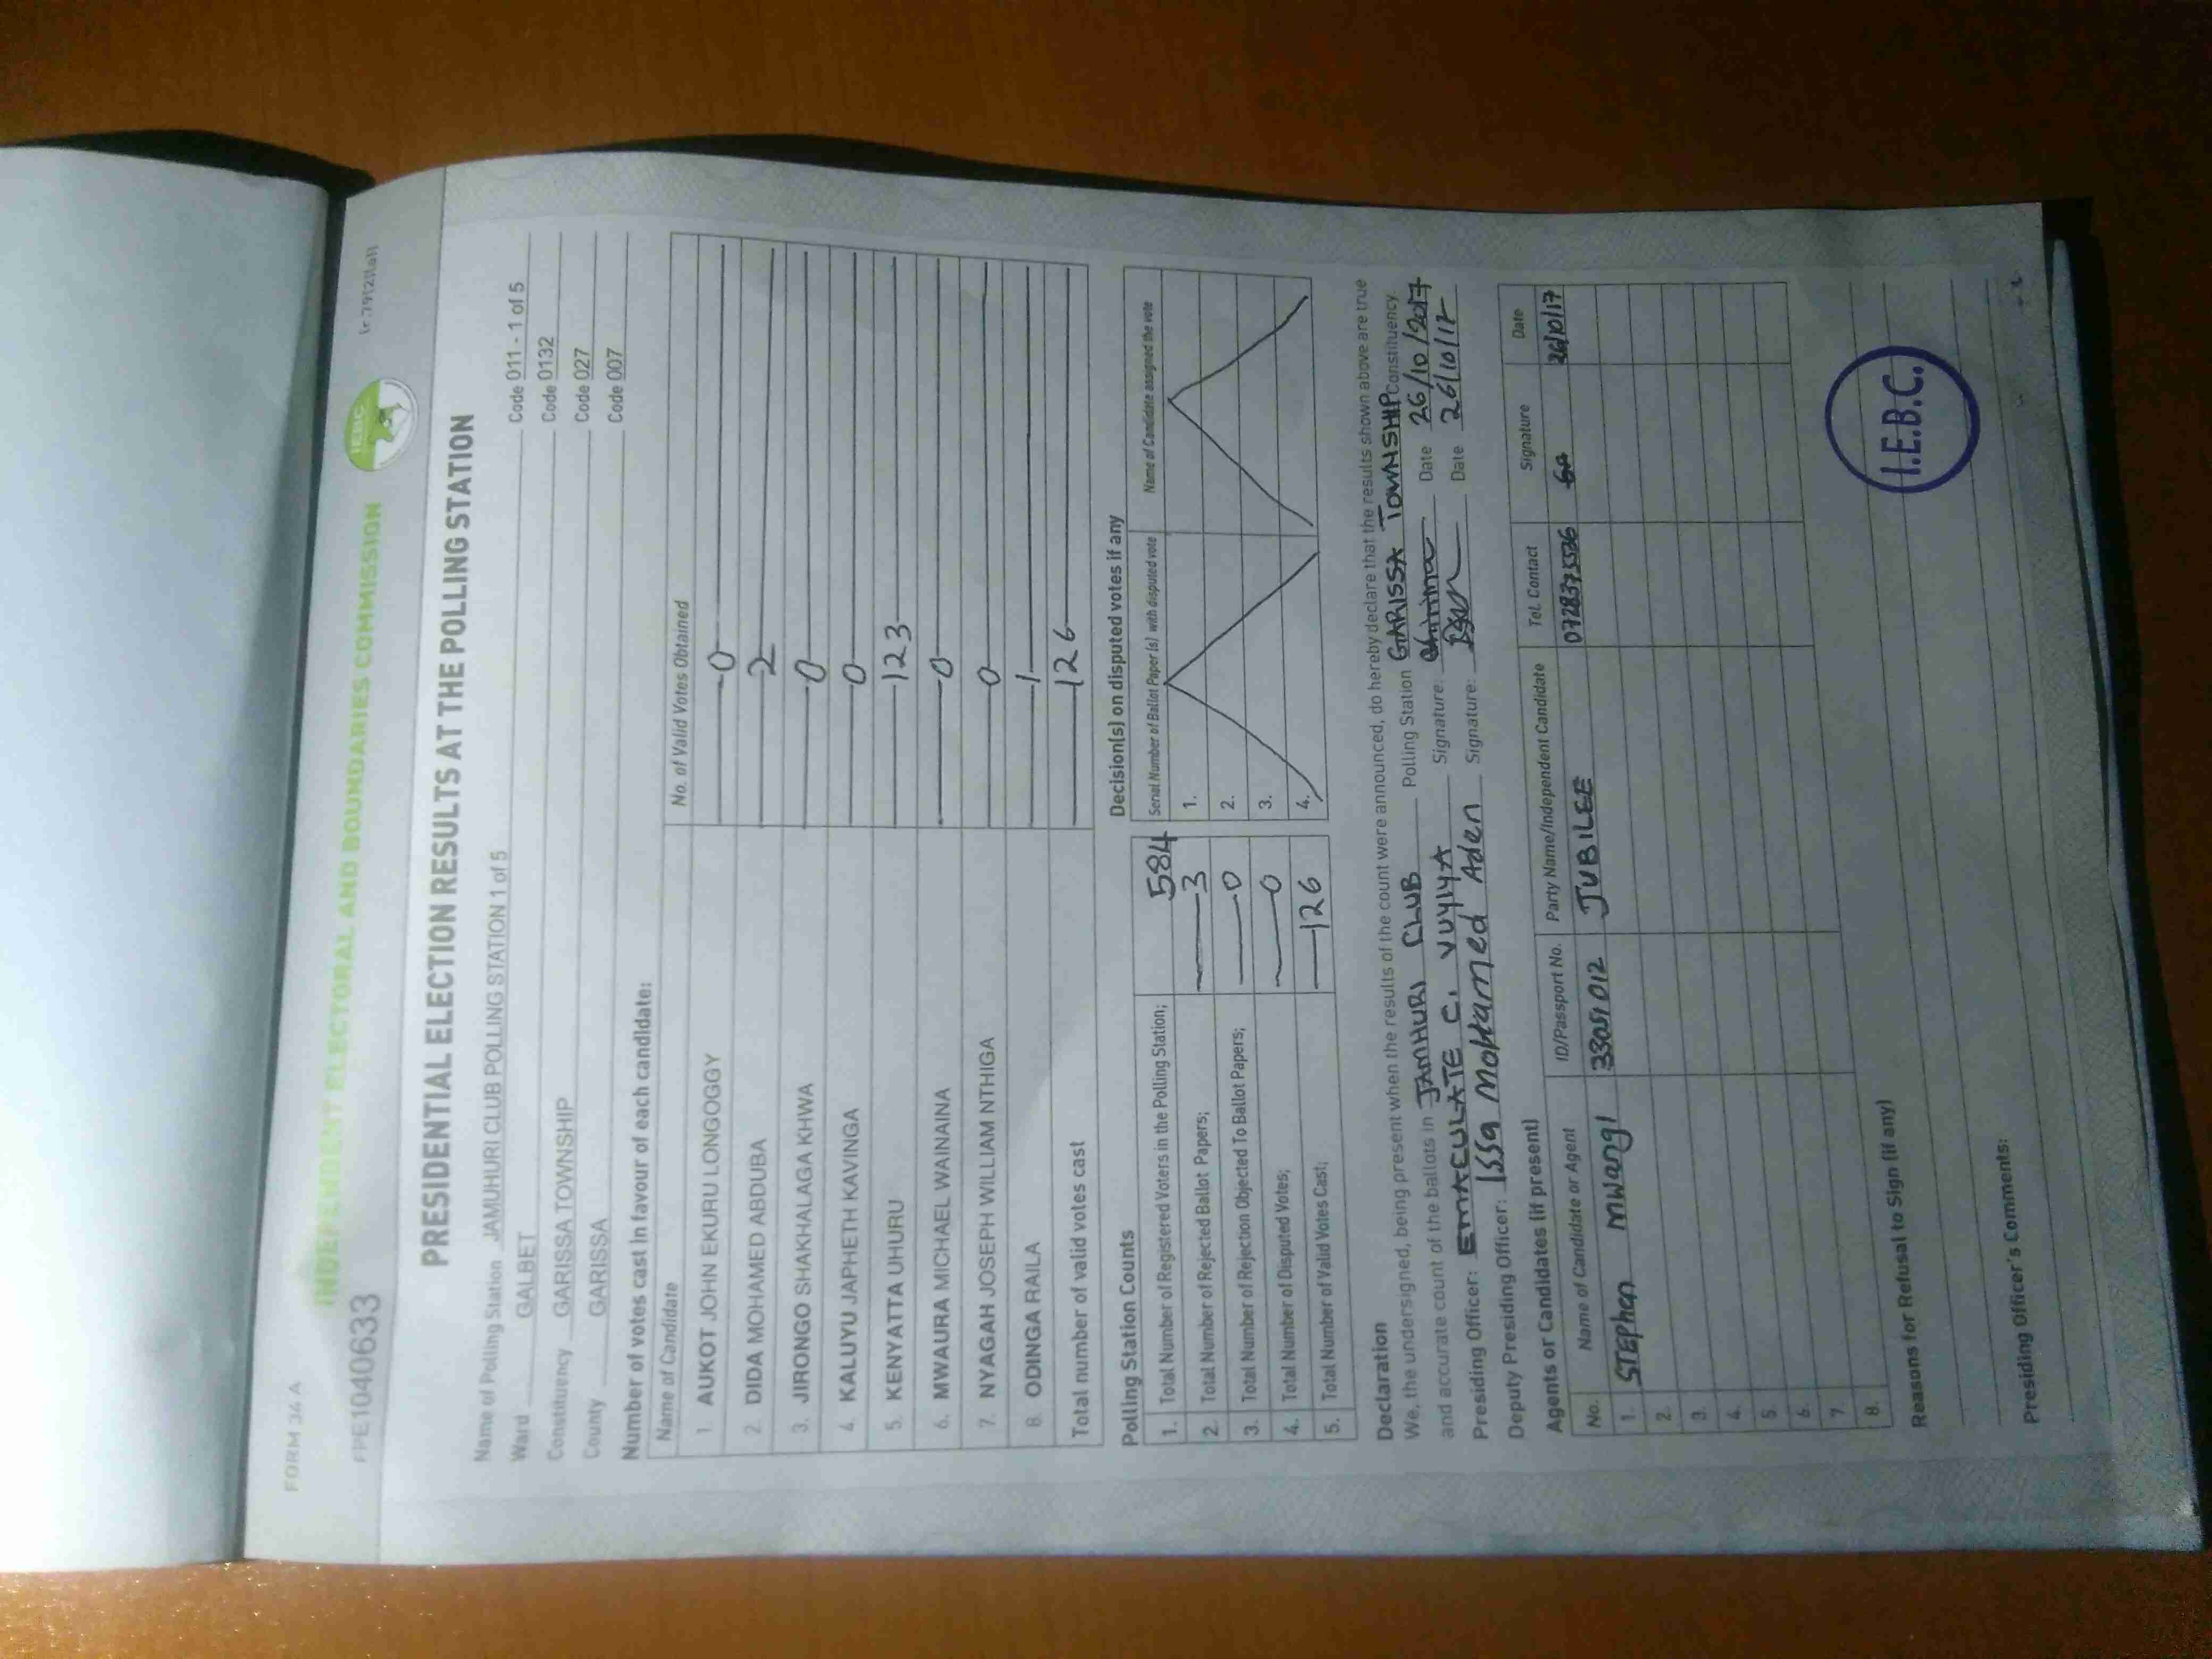 FORM 34 A
INDEPENDENT ELECTORAL AND BOUNDARIES COMMISSION
FPE1040633
IEBC
PRESIDENTIAL ELECTION RESULTS AT THE POLLING STATION
Name of Polling Station JAMUHURI CLUB POLLING STATION 1 of 5 Code 011 - 1 of 5
Ward GALBET Code 0132
Constituency GARISSA TOWNSHIP Code 027
County GARISSA Code 007
Number of votes cast in favour of each candidate:
Name of Candidate No. of Valid Votes Obtained
1. AUKOT JOHN EKURU LONGOGGY 0
2. DIDA MOHAMED ABDUBA 2
3. JIRONGO SHAKHALAGA KHWA 0
4. KALUYU JAPHETH KAVINGA 0
5. KENYATTA UHURU 123
6. MWAURA MICHAEL WAINAINA 0
7. NYAGAH JOSEPH WILLIAM NTHIGA 0
8. ODINGA RAILA 1
Total number of valid votes cast 126
Polling Station Counts
1. Total Number of Registered Voters in the Polling Station; 584
2. Total Number of Rejected Ballot Papers; 3
3. Total Number of Rejection Objected To Ballot Papers; 0
4. Total Number of Disputed Votes; 0
5. Total Number of Valid Votes Cast; 126
Decision(s) on disputed votes if any
Serial Number of Ballot Paper (s) with disputed vote Name of Candidate assigned the vote
1.
2.
3.
4.
Declaration
We, the undersigned, being present when the results of the count were announced, do hereby declare that the results shown above are true
and accurate count of the ballots in JAMHURI CLUB Polling Station GARISSA TOWNSHIP Constituency.
Presiding Officer: EMACULATE C. VUYIYA Signature: Date 26/10/2017
Deputy Presiding Officer: Issa MoHamed Aden Signature: Date 26/10/17
Agents or Candidates (if present)
No. Name of Candidate or Agent ID/Passport No. Party Name/Independent Candidate Tel. Contact Signature Date
1. STEPHEN MWANGI 33051012 JUBILEE 26/10/17
2.
3.
4.
5.
6.
7.
8.
Reasons for Refusal to Sign (if any)
I.E.B.C.
Presiding Officer's Comments: